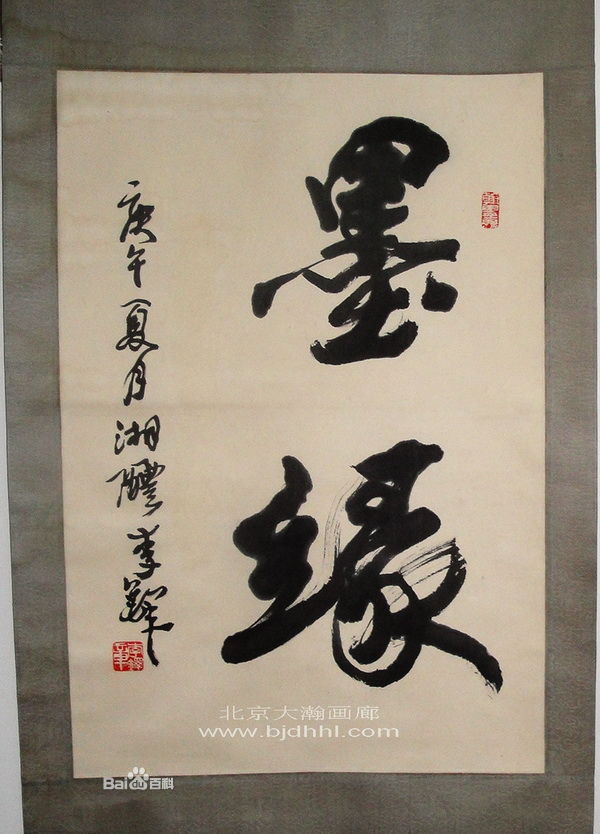 墨緣
庚午夏月湘醴李鐸
北京大瀚画廊
www.bjdhhl.com
Baidu百科